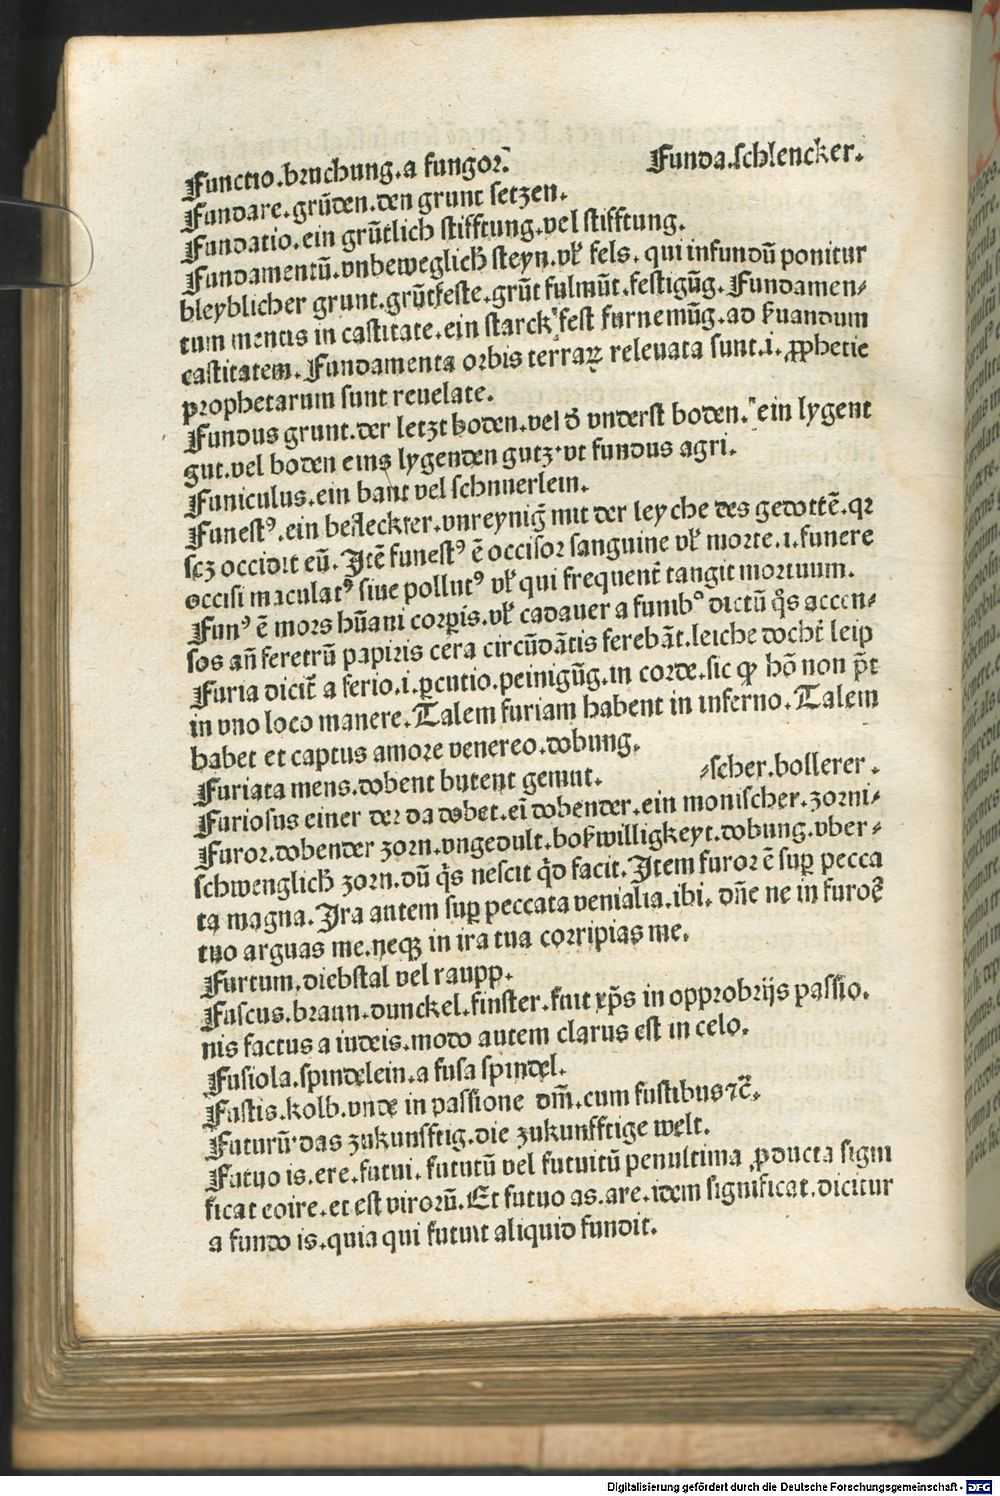 Functio.bruchung.a fungor. Funda.schlencker.
Fundare.grūden.den grunt setzen.
Fundatio.ein grūtlich stifftung.vel stifftung.
Fundamentū.vnbeweglich steyn.vł fels. qui infundū ponitur
bleyblicher grunt.grūtfeste.grūt fulmūt.festigūg. Fundamen-
tum mentis in castitate.ein starck fest furnemūg.ad ſuandum
castitatem. Fundamenta orbis terraꝝ reuelata sunt.i.ꝓphetie
prophetarum sunt reuelate.
Fundus grunt.der letzt boden.vel ď vnderst boden. ein lygent
gut.vel boden eins lygenden gutz.vt fundus agri.
Funiculus.ein bant vel schnuerlein.
Funestꝰ.ein befleckter.vnreynig mit der leyche des getottē.qꝛ
scꝫ occidit eū. Itē funestꝰ ē occisor sanguine vł morte.i.funere
occisi maculatꝰ siue pollutꝰ vł qui frequent̄ tangit mortuum.
Funꝰ ē mors hūani corpis.vł cadauer a funibꝰ dictū q̄s accen-
sos an̄ feretrū papiris cera circūdātis ferebāt.leiche docht leip
Furia dicit̄ a ferio.i.ꝑcutio.peinigūg.in corde.sic ꝙ hō non p̄t
in vno loco manere. Talem furiam habent in inferno. Talem
habet et captus amore venereo.dobung.
Furiata mens.dobent butent gemut. -scher.bollerer.
Furiosus einer der da dobet.eī dobender.ein monischer.zorni-
Furor.dobender zorn.vngedult.boßwilligkeyt.dobung.vber-
schwenglich zorn.dū q̄s nescit qd̄ facit. Item furor ē suꝑ pecca
ta magna. Ira autem suꝑ peccata venialia.ibi. dn̄e ne in furoē
tuo arguas me.neqꝫ in ira tua corripias me.
Furtum.diebstal vel raupp.
Fuscus.braun.dunckel.finster.fuit xp̄s in opprobrijs passio.
nis factus a iudeis.modo autem clarus est in celo.
Fusiola.spindelein.a fusa spindel.
Fustis.kolb.vnde in passione dm̄.cum fustibus ⁊c̄.
Futurū das zukunfftig.die zukunfftige welt.
Futuo is.ere.futui. fututū vel futuitū penultima ꝓducta signi
ficat coire.et est virorū. Et futuo as.are.idem significat.dicitur
a fundo is.quia qui futuit aliquid fundit.
Digitalisierung gefördert durch die Deutsche Forschungsgemeinschaft - DFG